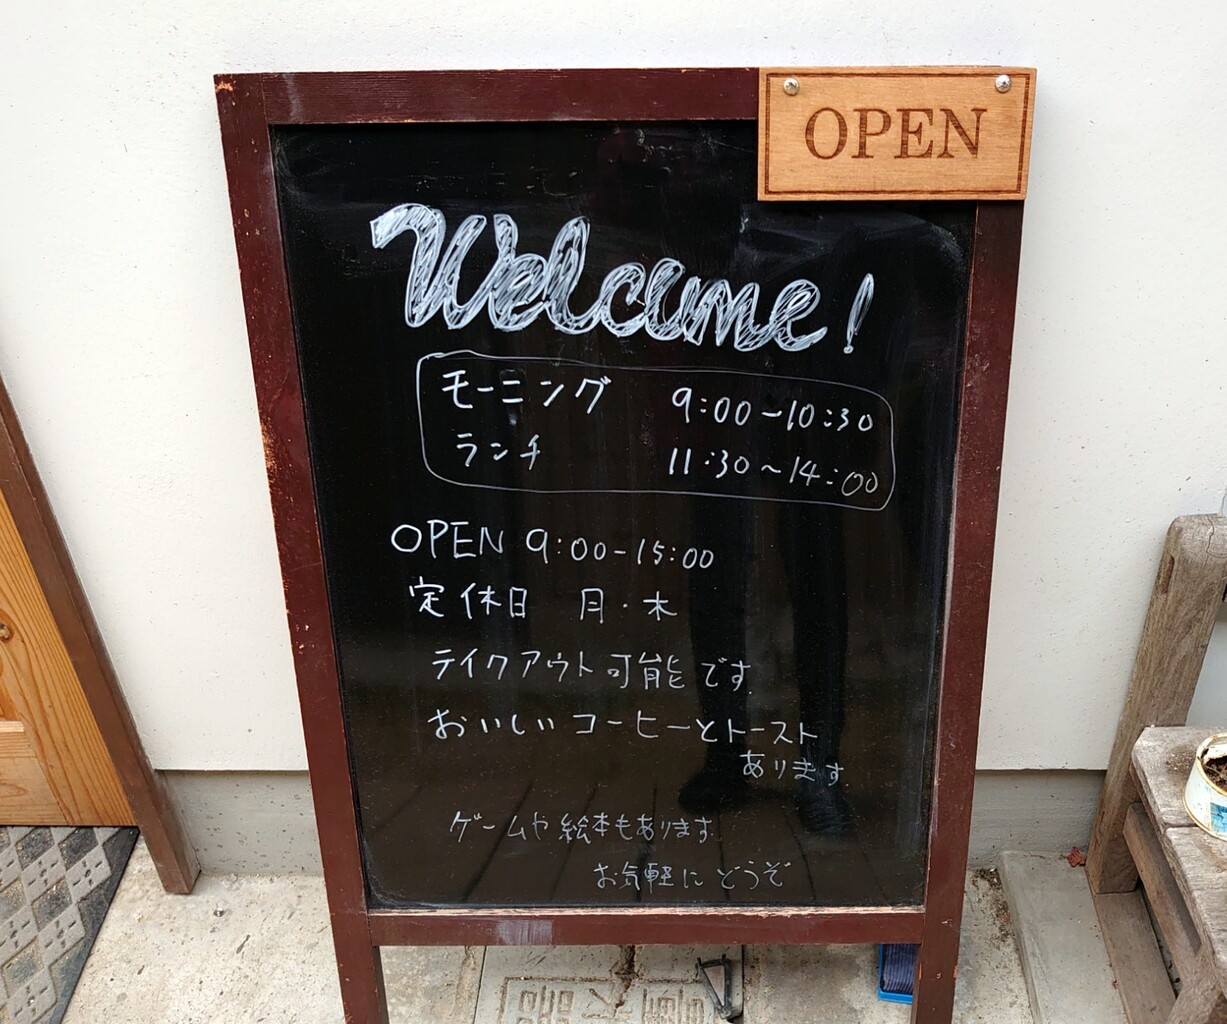 OPEN
Welcome!
モーニング 9:00-10:30
ランチ 11:30~14:00
OPEN 9:00-15:00
定休日 月・木
テイクアウト可能です
おいしいコーヒーとトースト
あります
ゲームや絵本もあります
お気軽にどうぞ